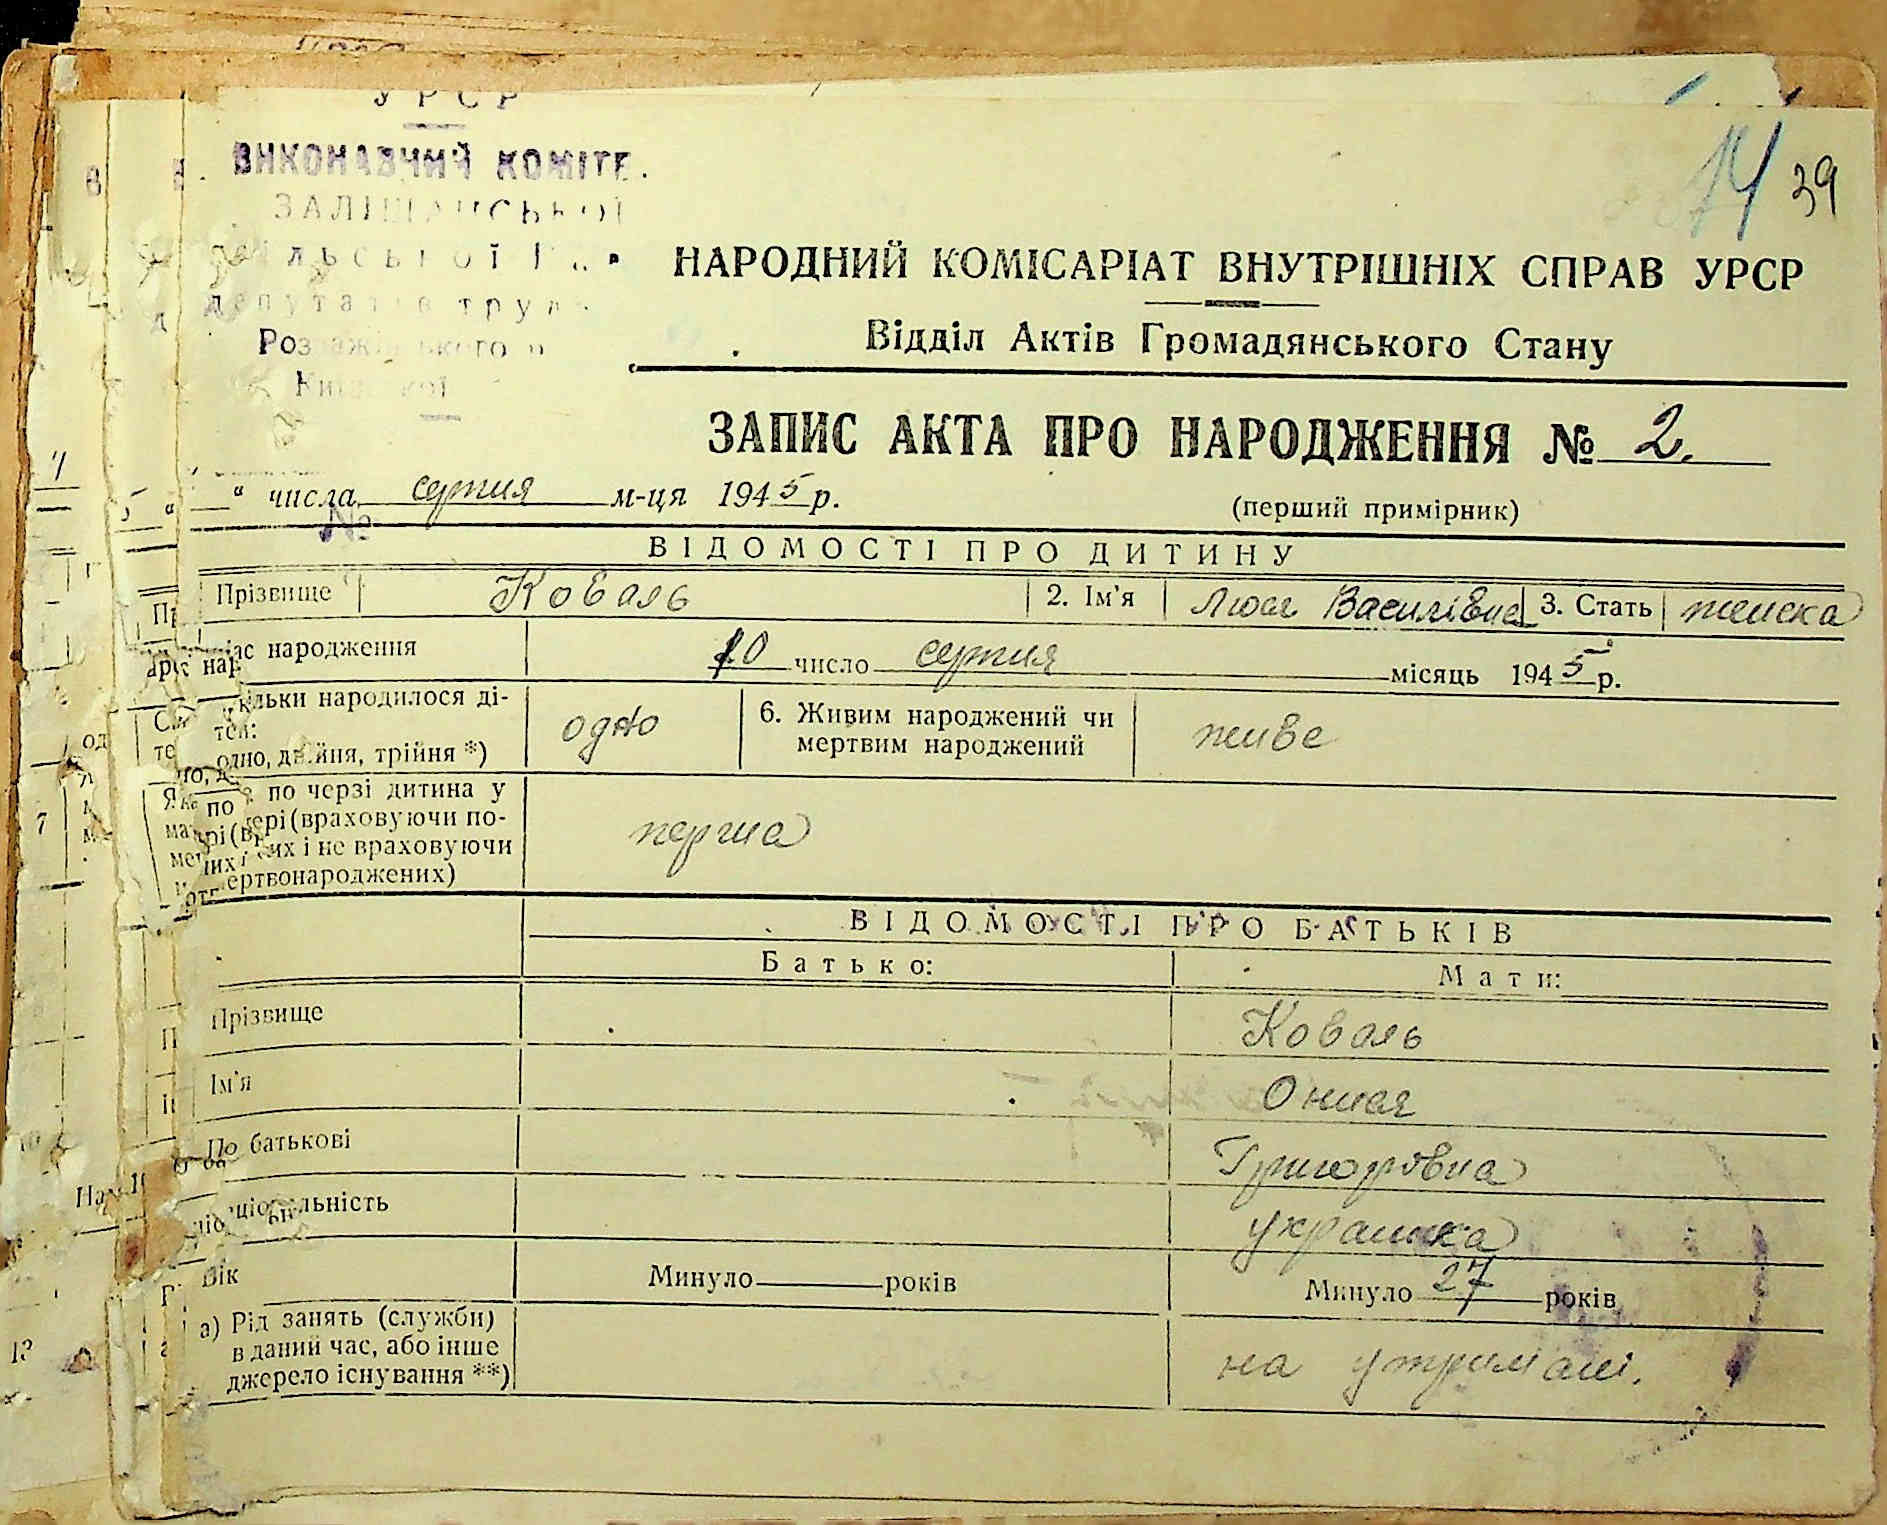 УРСР
ВИКОНАВЧИЙ КОМІТЕ
Київської
14 39
НАРОДНИЙ КОМІСАРІАТ ВНУТРІШНІХ СПРАВ УРСР
Відділ Актів Громадянського Стану
ЗАПИС АКТА ПРО НАРОДЖЕННЯ № 2.
" числа серпня м-ця 1945 р.
(перший примірник)
№
ВІДОМОСТІ ПРО ДИТИНУ
Прізвище Коваль 2. Ім'я Люся Василівна 3. Стать женска
ас народження 10 число серпня місяць 1945 р.
кільки народилося ді-
тей:
одно, двійня, трійня *) одно 6. Живим народжений чи
мертвим народжений живе
по черзі дитина у
ері (враховуючи по-
их і не враховуючи
ертвонароджених) перша
ВІДОМОСТІ ПРО БАТЬКІВ
Батько: Мати:
Прізвище Коваль
Ім'я Онися
По батькові Григоровна
Національність украинка
Вік Минуло років Минуло 27 років
а) Рід занять (служби)
в даний час, або інше
джерело існування **) на утримані.